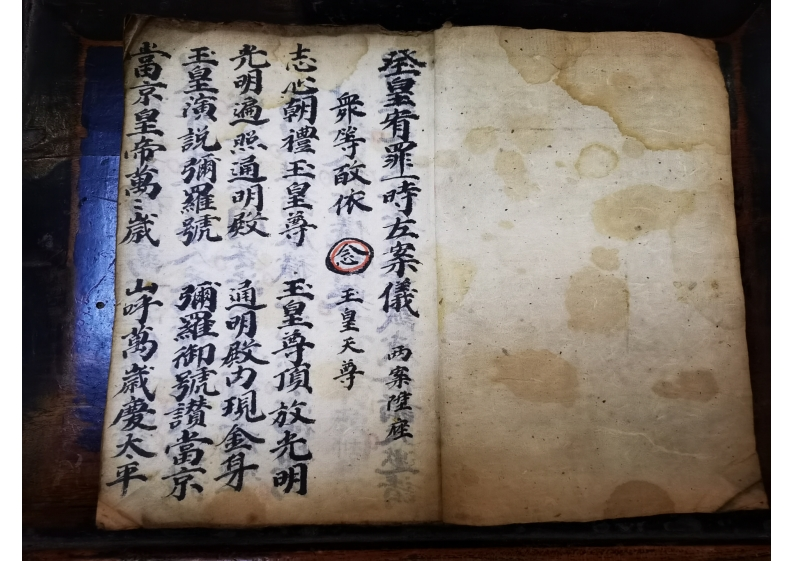 玉皇宥罪一時左案儀 兩案陞座
衆等皈依 念 玉皇天尊
志心朝禮玉皇尊 玉皇尊頂放光明
光明遍照通明殿 通明殿内現金身
玉皇演説彌羅號 彌羅御號讃當京
當京皇帝萬〻歲 山呼萬歲慶太平